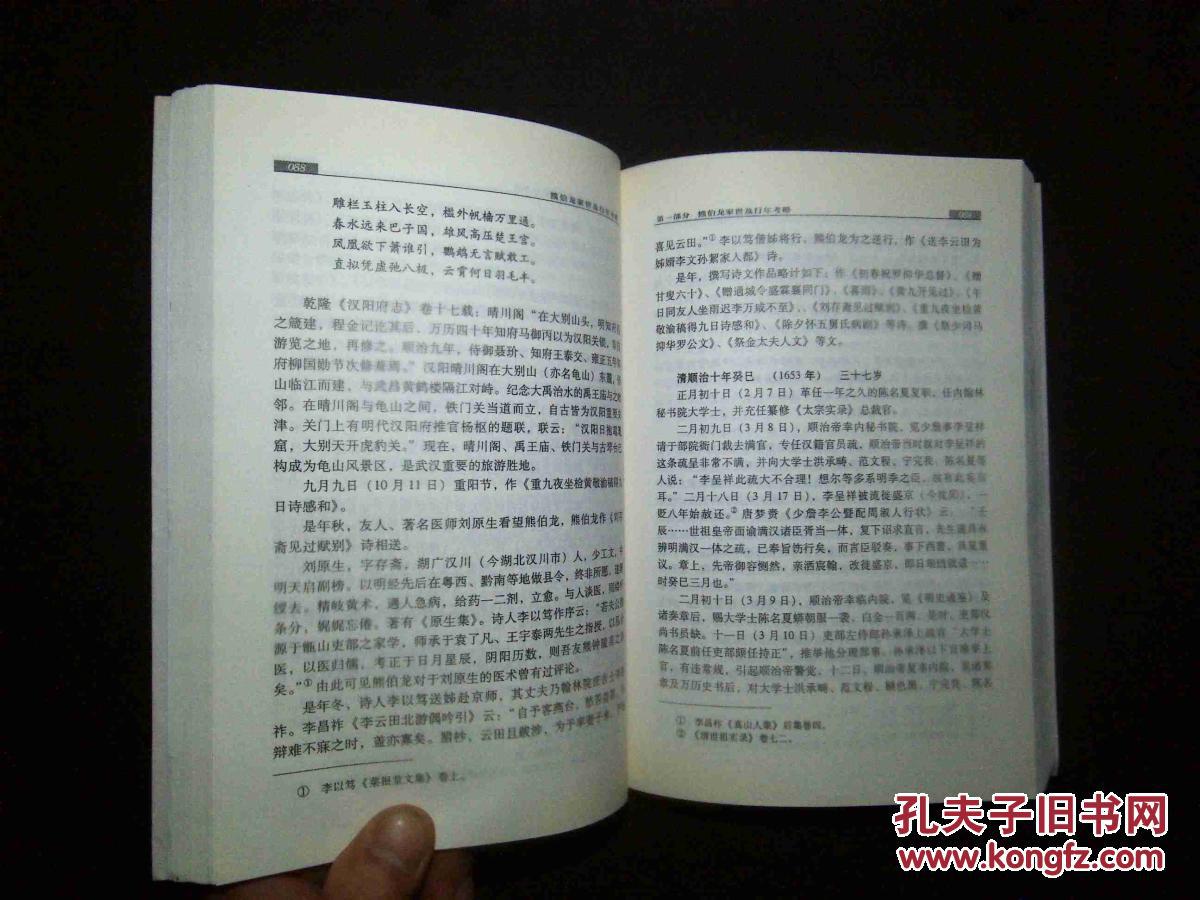 088
熊伯龙家世及行年考略
雕栏玉柱入长空，槛外帆樯万里通。
春水远来巴子国，雄风高压楚王宫。
凤凰欲下箫谁引，鹦鹉无言赋敢工。
直拟凭虚弛八极，云霄何日羽毛丰。
乾隆《汉阳府志》卷十七载：晴川阁“在大别山头，明知府
之箴建，程金记讫其后，万历四十年知府马御丙以为汉阳关锁，
游览之地，再修之。顺治九年，侍御聂玠、知府王泰交、雍正五年
府柳国勋节次修葺焉。”汉阳晴川阁在大别山（亦名龟山）东麓，
山临江而建，与武昌黄鹤楼隔江对峙。纪念大禹治水的禹王庙与之
邻。在晴川阁与龟山之间，铁门关当道而立，自古皆为汉阳重要
津。关门上有明代汉阳府推官杨枢的题联，联云：“汉阳日抱鼋鼍
窟，大别天开虎豹关。”现在，晴川阁、禹王庙、铁门关与古琴台已
构成为龟山风景区，是武汉重要的旅游胜地。
九月九日（10月11日）重阳节，作《重九夜坐检黄敬渝稿得九
日诗感和》。
是年秋，友人、著名医师刘原生看望熊伯龙，熊伯龙作《刘存
斋见过赋别》诗相送。
刘原生，字存斋，湖广汉川（今湖北汉川市）人，少工文，
明天启副榜。以明经先后在粤西、黔南等地做县令，终非所愿，
缨去。精岐黄术，遇人急病，给药一二剂，立愈。与人谈医，
条分，娓娓忘倦。著有《原生集》。诗人李以笃作序云：“若夫公
源于甑山吏部之家学，师承于袁了凡、王宇泰两先生之指授，以
医，以医归儒，考正于日月星辰，阴阳历数，则吾友熊钟陵
矣。”①由此可见熊伯龙对于刘原生的医术曾有过评论。
是年冬，诗人李以笃送姊赴京师，其丈夫乃翰林院庶吉士李昌
祚。李昌祚《李云田北游偶吟引》云：“自予客燕台，
辩难不寐之时，盖亦寡矣。腊杪，云田且跋涉，为予挈老子来，
① 李以笃《菜根堂文集》卷上。
第一部分 熊伯龙家世及行年考略
089
喜见云田。”①李以笃偕姊将行，熊伯龙为之送行，作《送李云田为
姊婿李文孙絮家人都》诗。
是年，撰写诗文作品略计如下：作《初春祝罗仰华总督》、《赠
甘叟六十》、《赠通城令盛霖襄同门》、《喜雨》、《黄九开见过》、《午
日同友人坐雨迟李万咸不至》、《刘存斋见过赋别》、《重九夜坐检黄
敬渝稿得九日诗感和》、《除夕怀五舅氏病剧》等诗。撰《祭少司马
抑华罗公文》、《祭金太夫人文》等文。
清顺治十年癸巳 （1653年） 三十七岁
正月初十日（2月7日）革任一年之久的陈名夏复职，任内翰林
秘书院大学士，并充任纂修《太宗实录》总裁官。
二月初九日（3月8日），顺治帝幸内秘书院，览少詹事李呈祥
请于部院衙门裁去满官，专任汉籍官员疏，顺治帝当时就对李呈祥的
这条疏呈非常不满，并向大学士洪承畴、范文程、宁完我、陈名夏等
人说：“李呈祥此疏大不合理！想尔等多系明季之臣，故有此妄言
耳。”二月十八日（3月17日），李呈祥被流徙盛京（今沈阳），一
贬八年始赦还。②唐梦赉《少詹李公暨配周淑人行状》云：“壬
辰……世祖皇帝面谕满汉诸臣胥当一体，复下诏求直言，先生
辨明满汉一体之疏，已奉旨饬行矣，而言臣驳奏，事下西曹，具爰重
议。章上，先帝御容恻然，亲洒宸翰，改徙盛京，即日艰送就道……
时癸巳三月也。”
二月初十日（3月9日），顺治帝幸临内院，览《明史通鉴》及
诸奏章后，赐大学士陈名夏蟒朝服一袭，白金一百两。是时，吏部仅
尚书员缺。十一日（3月10日）吏部左侍郎孙承泽上疏言“大学士
陈名夏前任吏部颇任持正”，推举他分理部事。孙承泽以下官亲举
官，有违常规，引起顺治帝警觉，十二日，顺治帝复幸内院，览诸奏
章及万历史书后，对大学士洪承畴、范文程、额色黑、宁完我、陈名
① 李昌祚《真山人集》后集卷四。
② 《清世祖实录》卷七二。
孔夫子旧书网
www.kongfz.com